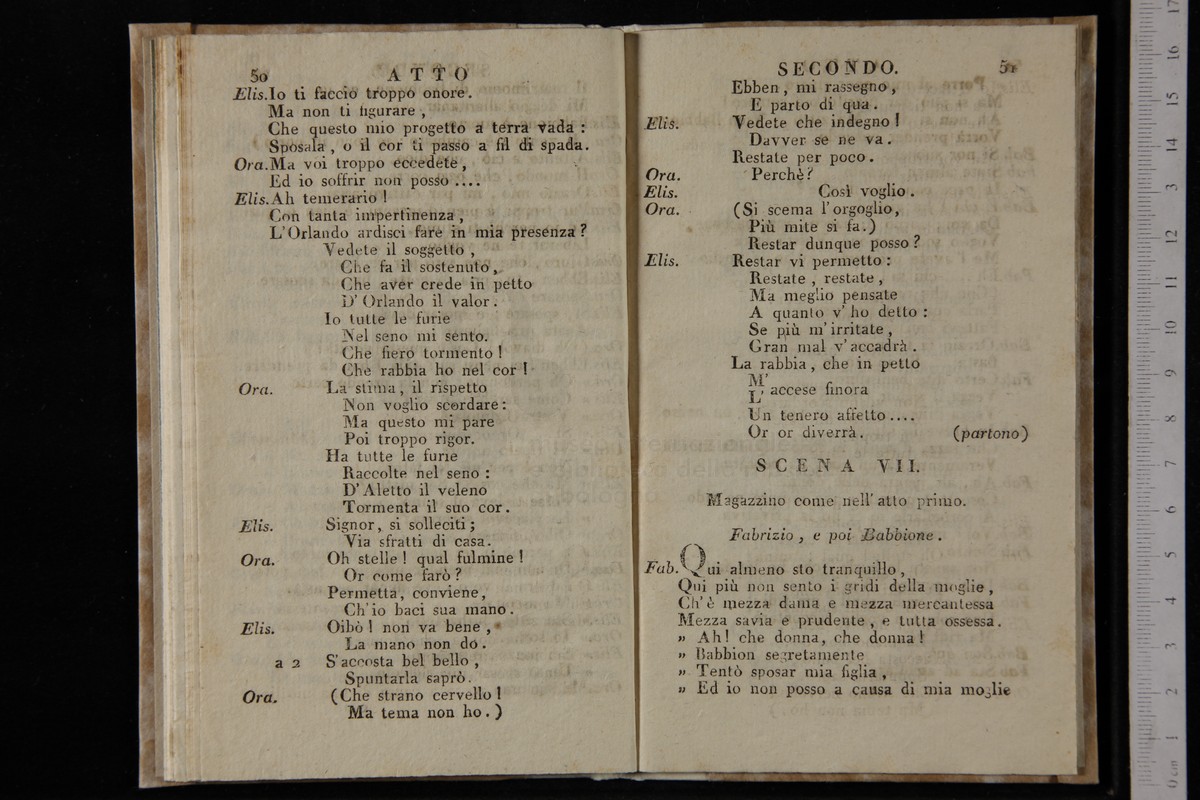 50 ATTO
Elis. Io ti faccio troppo onore.
Ma non ti figurare,
Che questo mio progetto a terra vada:
Sposala, o il cor ti passo a fil di spada.
Ora. Ma voi troppo eccedete,
Ed io soffrir non posso ....
Elis. Ah temerario!
Con tanta impertinenza,
L'Orlando ardisci fare in mia presenza?
Vedete il soggetto,
Che fa il sostenuto,
Che aver crede in petto
D'Orlando il valor.
Io tutte le furie
Nel seno mi sento.
Che fiero tormento!
Che rabbia ho nel cor!
Ora. La stima, il rispetto
Non voglio scordare:
Ma questo mi pare
Poi troppo rigor.
Ha tutte le furie
Raccolte nel seno:
D'Aletto il veleno
Tormenta il suo cor.
Elis. Signor, si solleciti;
Via sfratti di casa.
Ora. Oh stelle! qual fulmine!
Or come farò?
Permetta, conviene,
Ch'io baci sua mano.
Elis. Oibò! non va bene,
La mano non do.
a 2 S'accosta bel bello,
Spuntarla saprò.
Ora. (Che strano cervello!
Ma tema non ho.)
SECONDO. 51
Ebben, mi rassegno,
E parto di qua.
Elis. Vedete che indegno!
Davver se ne va.
Restate per poco.
Ora. Perchè?
Elis. Così voglio.
Ora. (Si scema l'orgoglio,
Più mite si fa.)
Restar dunque posso?
Elis. Restar vi permetto:
Restate, restate,
Ma meglio pensate
A quanto v'ho detto:
Se più m'irritate,
Gran mal v'accadrà.
La rabbia, che in petto
M'
L' accese finora
Un tenero affetto ....
Or or diverrà. (partono)
SCENA VII.
Magazzino come nell'atto primo.
Fabrizio, e poi Babbione.
Fab. Qui almeno sto tranquillo,
Qui più non sento i gridi della moglie,
Ch'è mezza dama e mezza mercantessa
Mezza savia e prudente, e tutta ossessa.
» Ah! che donna, che donna!
» Babbion segretamente
» Tentò sposar mia figlia,
» Ed io non posso a causa di mia moglie